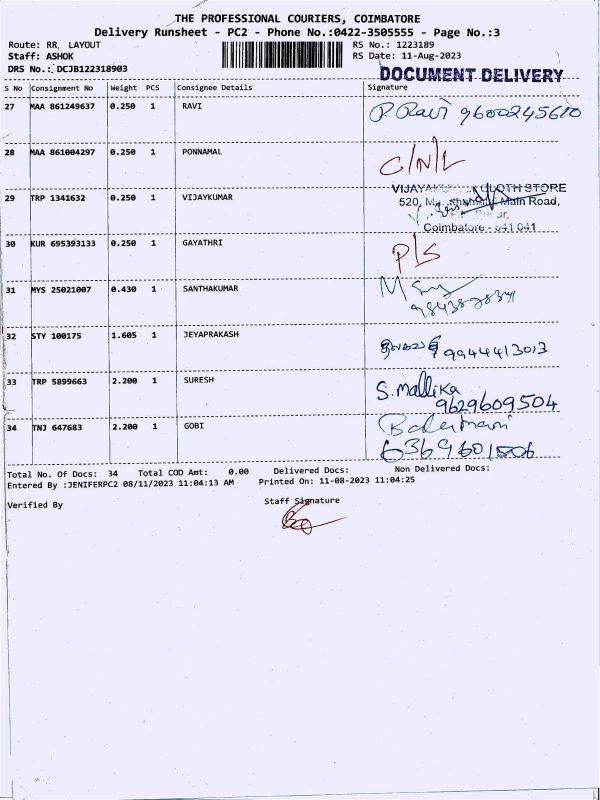 THE PROFESSIONAL COURIERS, COIMBATORE
Delivery Runsheet - PC2 - Phone No.:0422-3505555 - Page No.:3
Route: RR, LAYOUT RS No.: 1223189
Staff: ASHOK RS Date: 11-Aug-2023
DRS No.: DCJB122318903 DOCUMENT DELIVERY
S No Consignment No Weight PCS Consignee Details Signature
27 MAA 861249637 0.250 1 RAVI P. Ravi 9600245610
28 MAA 861004297 0.250 1 PONNAMAL C/N/L
29 TRP 1341632 0.250 1 VIJAYKUMAR CLOTH STORE
520, Main Road,
Coimbatore - 641 041
30 KUR 695393133 0.250 1 GAYATHRI P/S
31 MYS 25021007 0.430 1 SANTHAKUMAR
32 STY 100175 1.605 1 JEYAPRAKASH 9944413013
33 TRP 5899663 2.200 1 SURESH S. Mallika
9629609504
34 TNJ 647683 2.200 1 GOBI
6369601506
Total No. Of Docs: 34 Total COD Amt: 0.00 Delivered Docs: Non Delivered Docs:
Entered By :JENIFERPC2 08/11/2023 11:04:13 AM Printed On: 11-08-2023 11:04:25
Verified By Staff Signature